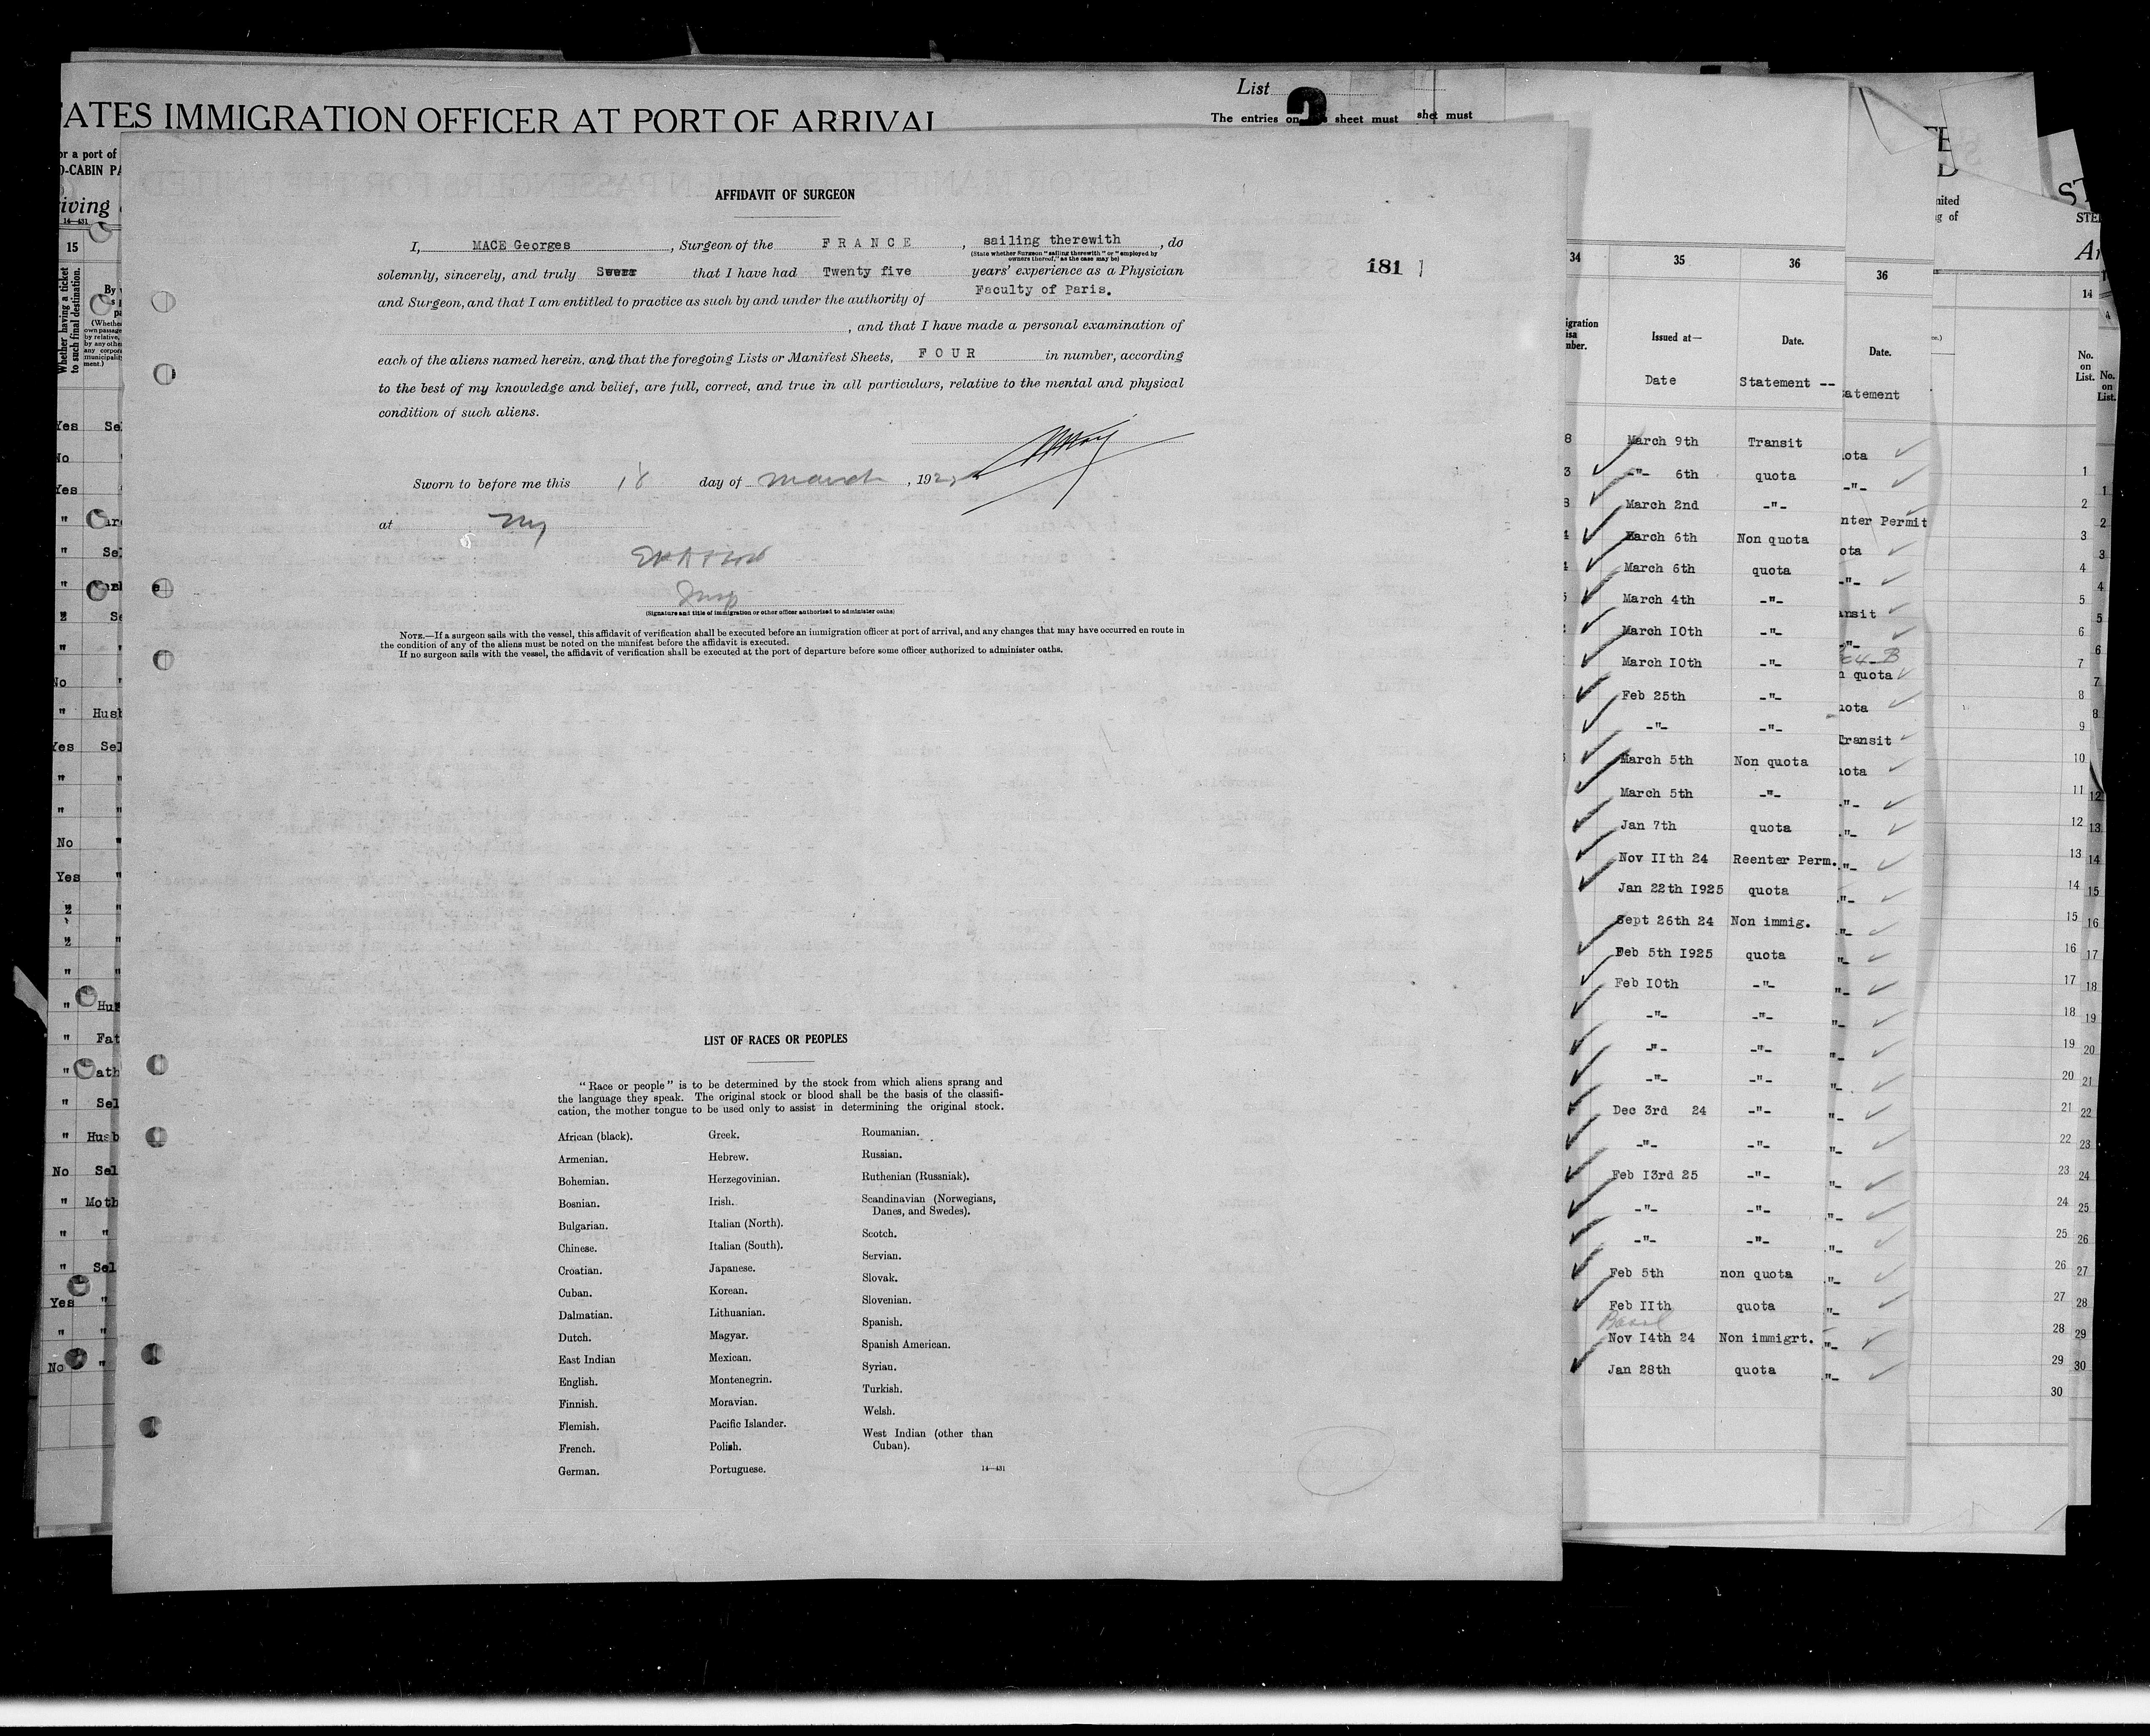 ATES IMMIGRATION OFFICER AT PORT OF ARRIVAL
List
The entries on sheet must
sheet must
or a port of
O-CABIN PA
iving
14—431
15
Whether having a ticket
to such final destination.
By
(Whether
own passage
by relative,
by any other
any corpor
municipality
ment.)
Yes Sel
No
Yes
"
" Sel
"
"
No "
" Husb
Yes Sel
" "
" "
No "
Yes "
" "
" Hus
" Fat
" ath
" Sel
" Husb
No Sel
" Moth
" "
" Sel
Yes "
" "
No "
AFFIDAVIT OF SURGEON
I, MACE Georges , Surgeon of the F R A N C E , sailing therewith , do
(State whether Surgeon "sailing therewith" or "employed by
owners thereof," as the case may be)
solemnly, sincerely, and truly Swear that I have had Twenty five years' experience as a Physician
and Surgeon, and that I am entitled to practice as such by and under the authority of Faculty of Paris.
, and that I have made a personal examination of
each of the aliens named herein, and that the foregoing Lists or Manifest Sheets, F O U R in number, according
to the best of my knowledge and belief, are full, correct, and true in all particulars, relative to the mental and physical
condition of such aliens.
Sworn to before me this 18 day of March , 192
at NY
Insp
(Signature and title of immigration or other officer authorized to administer oaths)
NOTE.—If a surgeon sails with the vessel, this affidavit of verification shall be executed before an immigration officer at port of arrival, and any changes that may have occurred en route in
the condition of any of the aliens must be noted on the manifest before the affidavit is executed.
If no surgeon sails with the vessel, the affidavit of verification shall be executed at the port of departure before some officer authorized to administer oaths.
181
LIST OF RACES OR PEOPLES
"Race or people" is to be determined by the stock from which aliens sprang and
the language they speak. The original stock or blood shall be the basis of the classifi-
cation, the mother tongue to be used only to assist in determining the original stock.
African (black).
Armenian.
Bohemian.
Bosnian.
Bulgarian.
Chinese.
Croatian.
Cuban.
Dalmatian.
Dutch.
East Indian
English.
Finnish.
Flemish.
French.
German.
Greek.
Hebrew.
Herzegovinian.
Irish.
Italian (North).
Italian (South).
Japanese.
Korean.
Lithuanian.
Magyar.
Mexican.
Montenegrin.
Moravian.
Pacific Islander.
Polish.
Portuguese.
Roumanian.
Russian.
Ruthenian (Russniak).
Scandinavian (Norwegians,
Danes, and Swedes).
Scotch.
Servian.
Slovak.
Slovenian.
Spanish.
Spanish American.
Syrian.
Turkish.
Welsh.
West Indian (other than
Cuban).
14—431
34 35 36
igration
isa
nber.
Issued at— Date.
Date Statement --
March 9th Transit
-"- 6th quota
March 2nd -"-
March 6th Non quota
March 6th quota
March 4th -"-
March 10th -"-
March 10th -"-
Feb 25th -"-
-"- -"-
March 5th Non quota
March 5th -"-
Jan 7th quota
Nov IIth 24 Reenter Perm.
Jan 22th I925 quota
Sept 26th 24 Non immig.
Feb 5th I925 quota
Feb IOth -"-
-"- -"-
-"- -"-
-"- -"-
Dec 3rd 24 -"-
-"- -"-
Feb I3rd 25 -"-
-"- -"-
-"- -"-
Feb 5th non quota
Feb IIth quota
Nov I4th 24 Non immigrt.
Jan 28th quota
36
Date.
atement
ota
-"-
nter Permit
ota
-"-
ansit
-"-
quota
uota
Transit
uota
nited
g of
STE
14
No.
on
List.
1
2
3
4
5
6
7
8
9
10
11
12
13
14
15
16
17
18
19
20
21
22
23
24
25
26
27
28
29
30
4
No.
on
List.
1
2
3
4
5
6
7
8
12
13
14
15
16
17
18
19
20
21
22
23
24
25
26
27
28
29
30